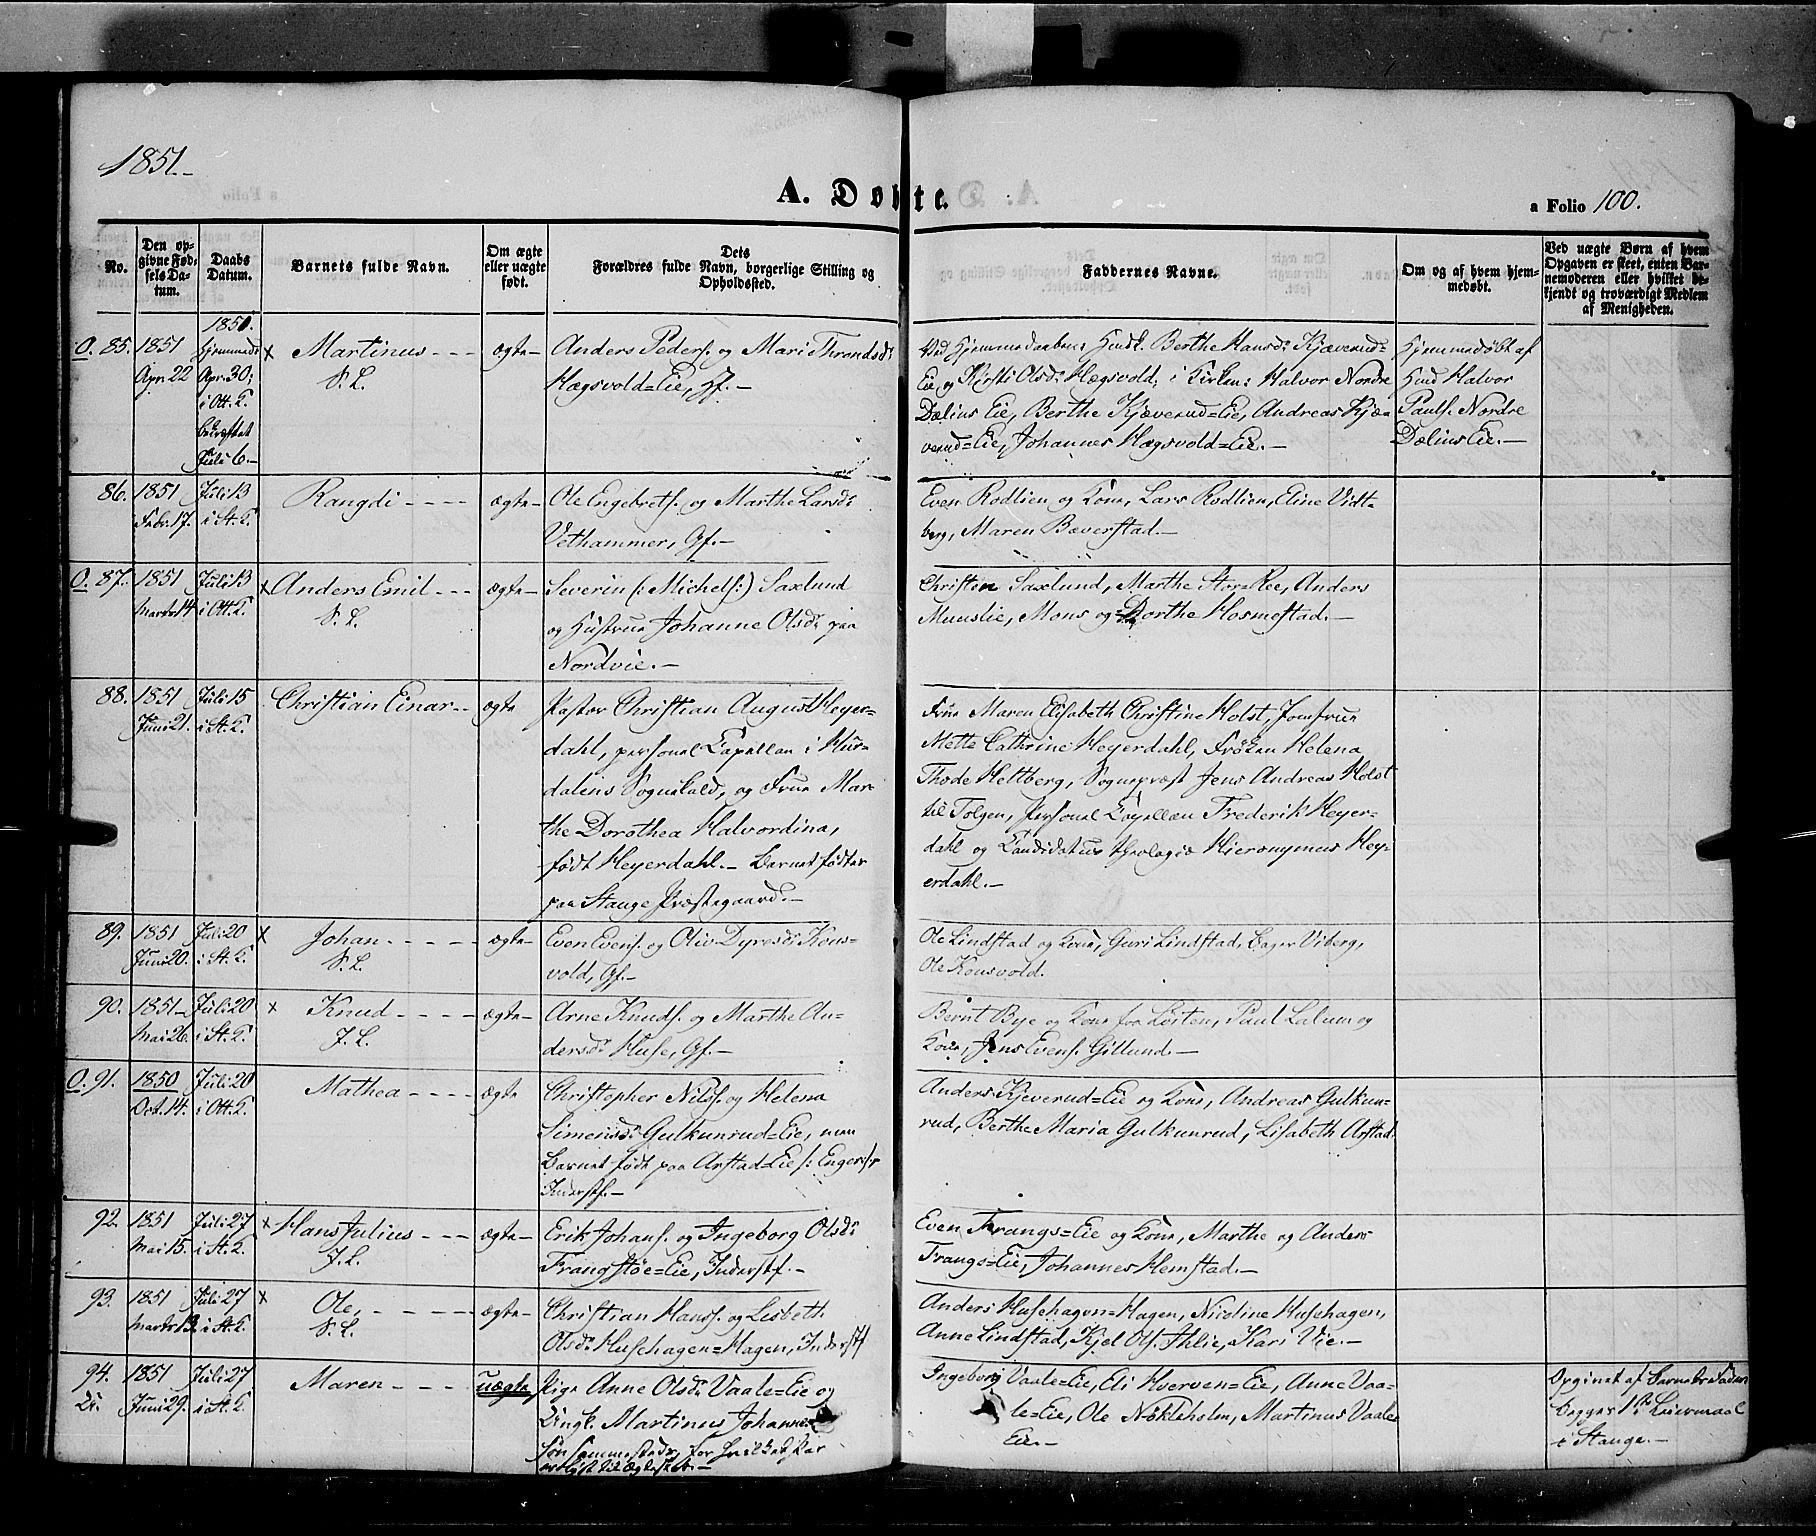 1851.
A. Døbte.
a Folio 100.
No.
Den op-
givne Fød-
sels Da-
tum.
Daabs
Datum.
Barnets fulde Navn.
Om ægte
eller uægte
født.
Dets
Forældres fulde Navn, borgerlige Stilling og
Opholdssted.
Faddernes Navne.
Om og af hvem hjem-
medøbt.
Ved uægte Børn af hvem
Opgaven er skeet, enten Bar-
nemoderen eller hvilket be-
kjendt og troværdigt Medlem
af Menigheden.
O. 85.
1851
Apr. 22
1851.
Hjemmed.
Apr. 30;
i Ott. K.
Juli 6.-
x Martinus - - -
S. L.
ægte-
Anders Peders. og Mari Thrandsd:
Hægsvold=Eie, Gf.-
Ved Hjemmedaaben Huusk. Berthe Hansd: Kjæverud=
Eie, og Kirsti Olsd: Hægsvold; i Kirken: Halvor Nordre
Dælins Eie, Berthe Kjæverud=Eie, Andreas Kjæ-
verud=Eie, Johannes Hægsvold=Eie.-
Hjemmedøbt af
Huusm. Halvor
Pauls. Nordre
Dælins Eie.-
86.
1851
Febr. 17.
Juli 13
i St. K.
Rangdi - - - -
ægte-
Ole Engebrets. og Marthe Larsd:
Vethammer, Gf.-
Even Rodlien og Kone, Lars Rodlien, Eline Vidt-
berg, Maren Bæverstad.-
O. 87.
1851
Marts 14
Juli 13
i Ott. K.
x Anders Emil - -
S. L.
ægte-
Severin (: Michels :) Saxlund
og Hustrue Johanne Olsd: paa
Nordvie.-
Christen Saxlund, Marthe Store Ree, Anders
Muuslie, Mons og Dorthe Hosmestad.-
88.
1851
Juni 21.
Juli 15
i St. K.
Christian Einar - -
ægte
Pastor Christian August Heyer-
dahl, personel Capellan i Hur-
dalens Sognekald, og Frue Mar-
the Dorothea Halvordina,
født Heyerdahl.- Barnet født
paa Stange Præstegaard.-
Frue Maren Elisabeth Christine Holst, Jomfrue
Mette Cathrine Heyerdahl, Frøken Helena
Thode Heltberg, Sognepræst Jens Andreas Holst
til Tolgen, personel Capellan Frederik Heyer-
dahl og Candidatus theologiæ Hieronymus Hey-
erdahl.-
89.
1851
Juni 20.
Juli 20
i St. K.
x Johan - - - -
S. L.
ægte-
Even Evens. og Oliv Dyresd: Kons-
vold, Gf.-
Ole Lindstad og Kone, Guri Lindstad, Viberg,
Ole Konsvold.
90.
1851
Mai 26.
Juli 20
i St. K.
x Knud - - - -
J. L.
ægte-
Arne Knuds. og Marthe An-
dersd: Huse, Gf.-
Bernt Bye og Kone fra Løiten, Paul Lalum og
Kone, Jens Evens. Gillund.-
O. 91.
1850
Oct. 14.
Juli 20
i Ott. K.
Mathea - - - -
ægte
Christopher Nils. og Helena
Simensd: Gulkunrud=Eie, men
Barnet født paa Arstad=Eie
Inderst.-
Anders Kjeverud=Eie og Kone, Andreas Gulkun-
rud, Berthe Maria Gulkunrud, Lisabeth Arstad.
92.
1851
Mai 15.
Juli 27
i St. K.
x Hans Julius - - -
J. L.
ægte-
Erik Johans. og Ingeborg Olsd:
Frangstøe=Eie, Inderstf.-
Even Frangs=Eie og Kone, Marthe og Anders
Frangs=Eie, Johannes Hemstad.-
93.
1851
Marts 13
Juli 27
i St. K.
x Ole, - - - - -
S. L.
ægte-
Christian Hans. og Lisbeth
Olsd: Husehagen=Hagen, Inderstf
Anders Husehagen=Hagen, Nicoline Husehagen,
Anne Lindstad, Kjel Ols. Ihlie, Kari Vie.-
94.
1851
Juni 29.
Juli 27
i St. K.
Maren - - - -
uægte
Pige Anne Olsd: Vaale=Eie og
Ungk. Martinus Johannes-
søn
Ingeborg Vaale=Eie, Eli Hverven=Eie, Anne Vaa-
le=Eie, Ole Nøkleholm, Martinus Vaale
Eie.-
Opgivet af Barnets Fader
Begges 1ste Leiermaal
i Stange.-